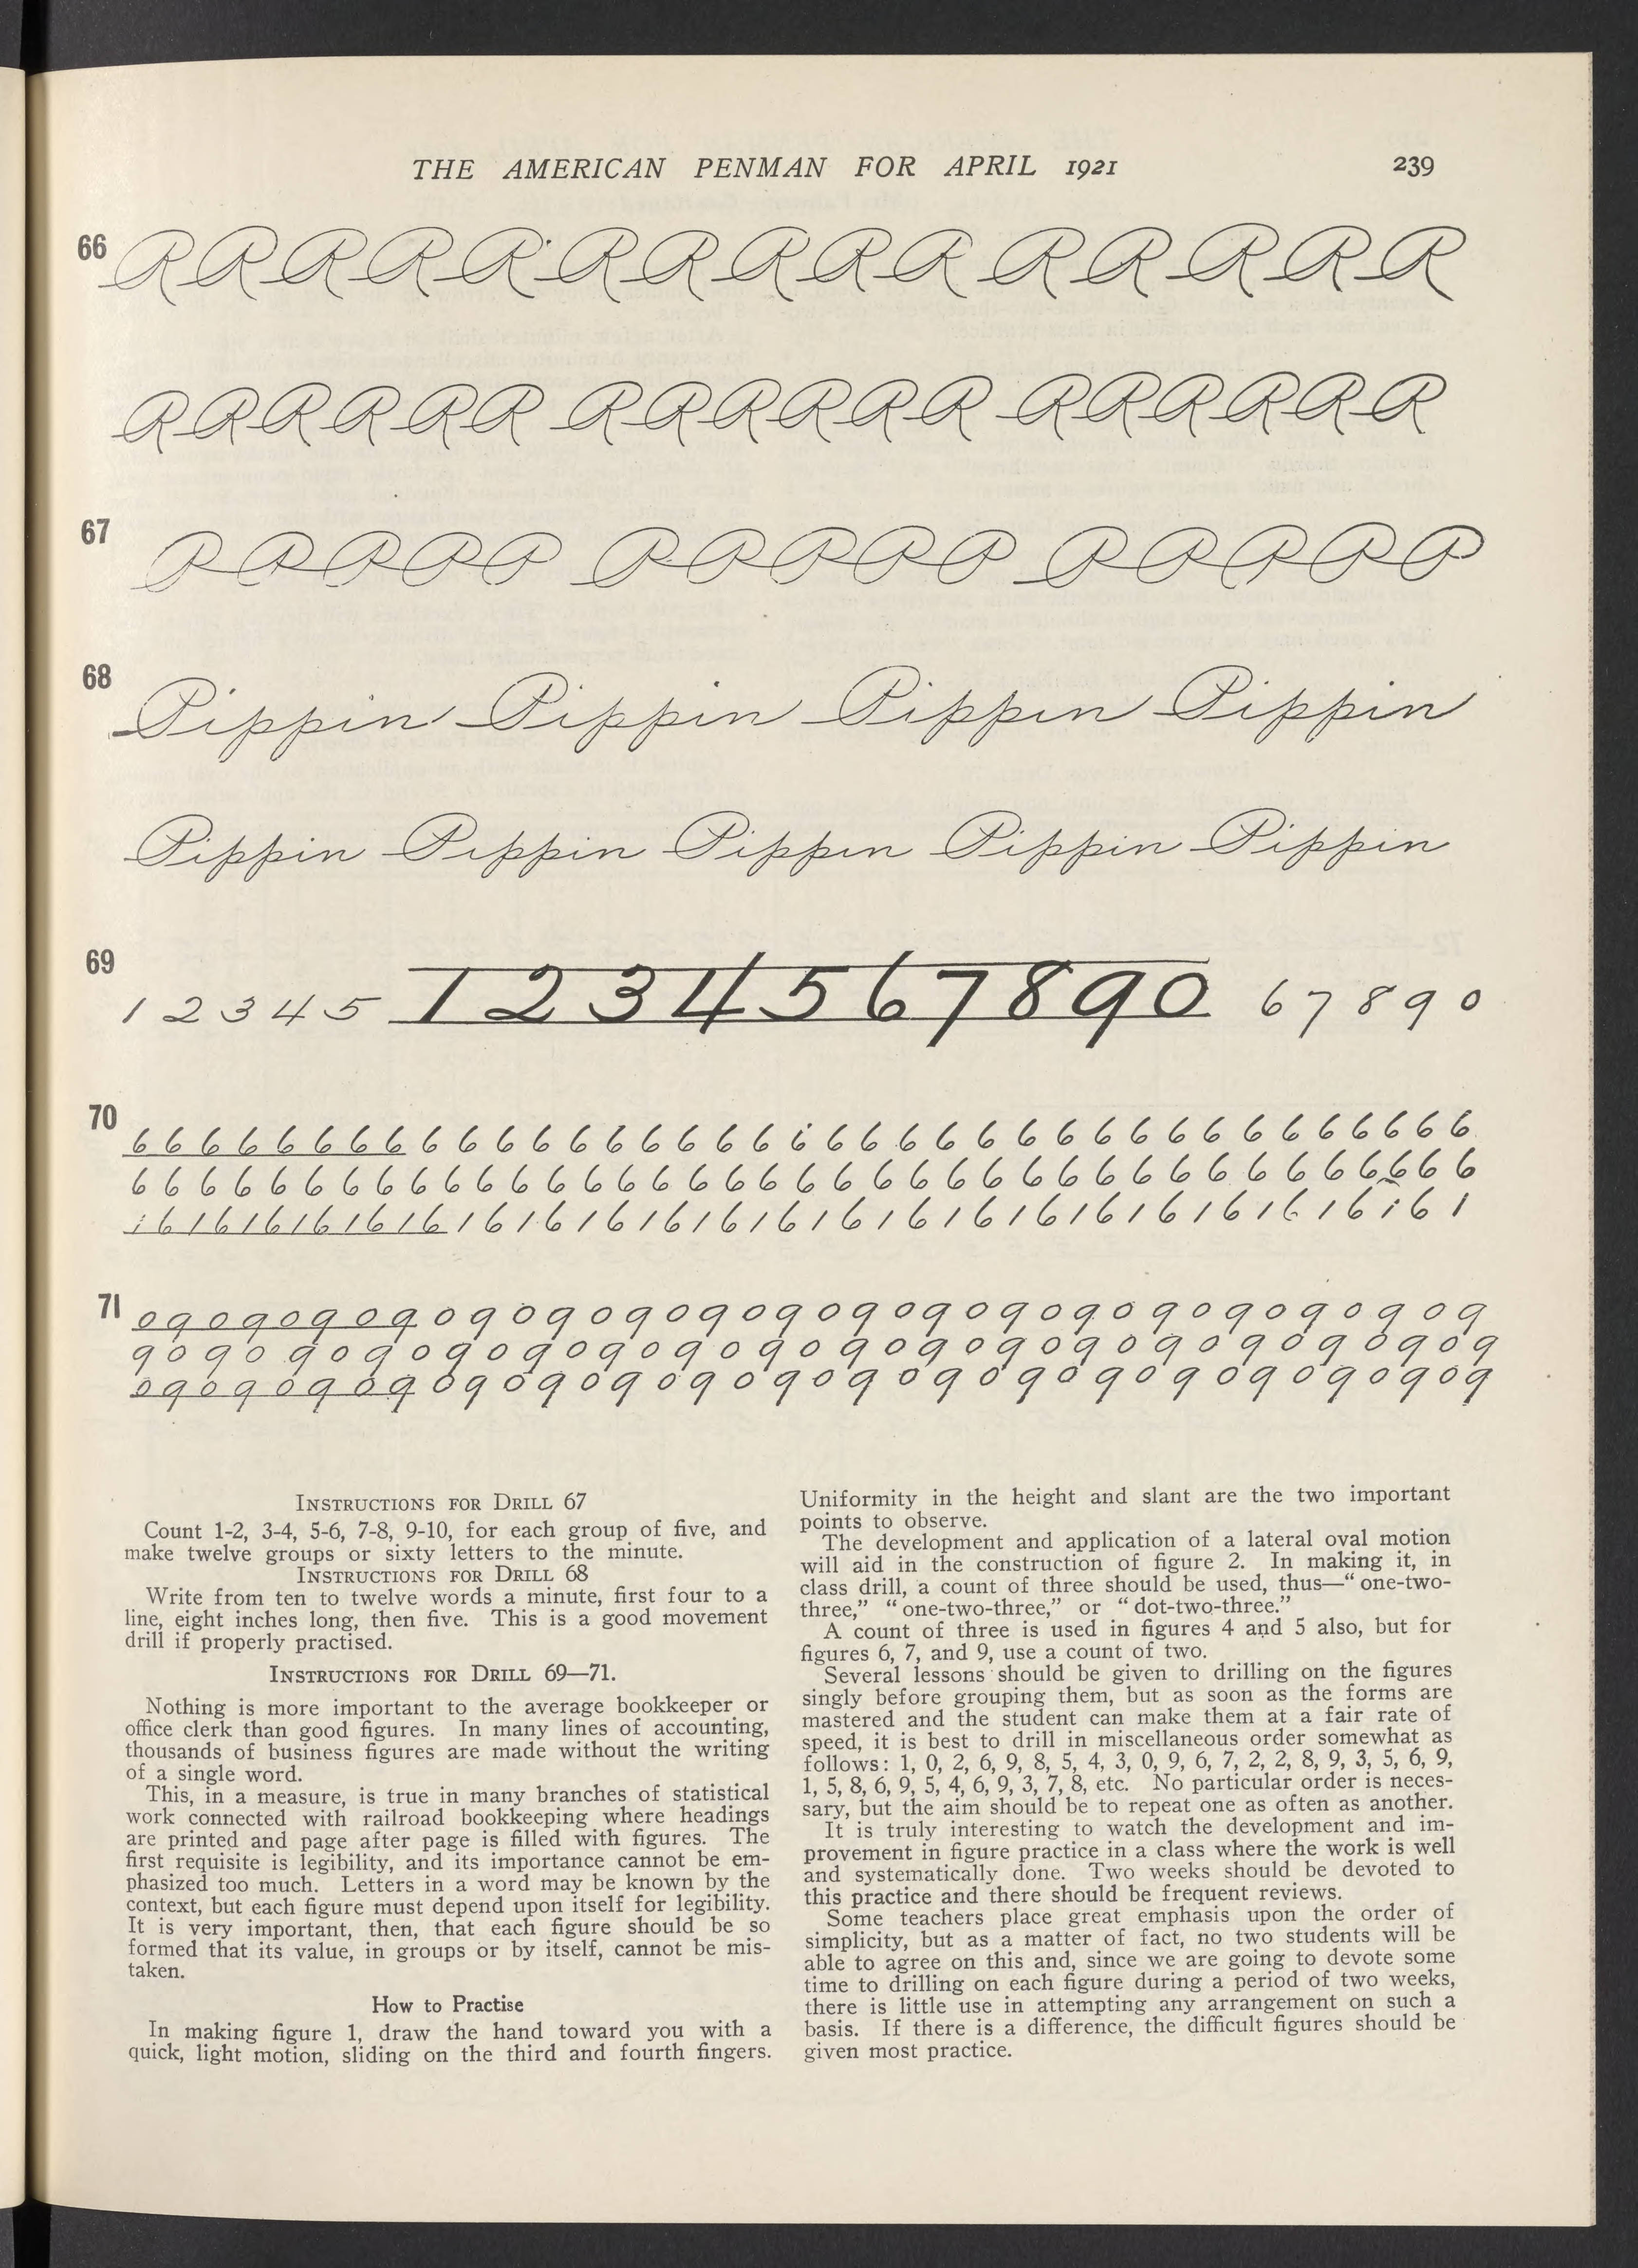 THE AMERICAN PENMAN FOR APRIL 1921 239
66 R R R R R R R R R R R R R R R
R R R R R R R R R R R R R R R R R R
67 P P P P P P P P P P P P P P P
68 Pippin Pippin Pippin Pippin
Pippin Pippin Pippin Pippin Pippin
69 1 2 3 4 5 1 2 3 4 5 6 7 8 9 0 6 7 8 9 0
70 6 6 6 6 6 6 6 6 6 6 6 6 6 6 6 6 6 6 6 6 6 6 6 6 6 6 6 6 6 6 6 6 6 6 6 6 6
6 6 6 6 6 6 6 6 6 6 6 6 6 6 6 6 6 6 6 6 6 6 6 6 6 6 6 6 6 6 6 6 6 6 6 6 6 6
1 6 1 6 1 6 1 6 1 6 1 6 1 6 1 6 1 6 1 6 1 6 1 6 1 6 1 6 1 6 1 6 1 6 1 6 1 6 1 6 1 6 1 6 1
71 0 9 0 9 0 9 0 9 0 9 0 9 0 9 0 9 0 9 0 9 0 9 0 9 0 9 0 9 0 9 0 9 0 9 0 9
9 0 9 0 9 0 9 0 9 0 9 0 9 0 9 0 9 0 9 0 9 0 9 0 9 0 9 0 9 0 9 0 9 0 9
0 9 0 9 0 9 0 9 0 9 0 9 0 9 0 9 0 9 0 9 0 9 0 9 0 9 0 9 0 9 0 9 0 9 0 9
INSTRUCTIONS FOR DRILL 67
Count 1-2, 3-4, 5-6, 7-8, 9-10, for each group of five, and
make twelve groups or sixty letters to the minute.
INSTRUCTIONS FOR DRILL 68
Write from ten to twelve words a minute, first four to a
line, eight inches long, then five. This is a good movement
drill if properly practised.
INSTRUCTIONS FOR DRILL 69—71.
Nothing is more important to the average bookkeeper or
office clerk than good figures. In many lines of accounting,
thousands of business figures are made without the writing
of a single word.
This, in a measure, is true in many branches of statistical
work connected with railroad bookkeeping where headings
are printed and page after page is filled with figures. The
first requisite is legibility, and its importance cannot be em-
phasized too much. Letters in a word may be known by the
context, but each figure must depend upon itself for legibility.
It is very important, then, that each figure should be so
formed that its value, in groups or by itself, cannot be mis-
taken.
How to Practise
In making figure 1, draw the hand toward you with a
quick, light motion, sliding on the third and fourth fingers.
Uniformity in the height and slant are the two important
points to observe.
The development and application of a lateral oval motion
will aid in the construction of figure 2. In making it, in
class drill, a count of three should be used, thus—“ one-two-
three,” “ one-two-three,” or “ dot-two-three.”
A count of three is used in figures 4 and 5 also, but for
figures 6, 7, and 9, use a count of two.
Several lessons should be given to drilling on the figures
singly before grouping them, but as soon as the forms are
mastered and the student can make them at a fair rate of
speed, it is best to drill in miscellaneous order somewhat as
follows: 1, 0, 2, 6, 9, 8, 5, 4, 3, 0, 9, 6, 7, 2, 2, 8, 9, 3, 5, 6, 9,
1, 5, 8, 6, 9, 5, 4, 6, 9, 3, 7, 8, etc. No particular order is neces-
sary, but the aim should be to repeat one as often as another.
It is truly interesting to watch the development and im-
provement in figure practice in a class where the work is well
and systematically done. Two weeks should be devoted to
this practice and there should be frequent reviews.
Some teachers place great emphasis upon the order of
simplicity, but as a matter of fact, no two students will be
able to agree on this and, since we are going to devote some
time to drilling on each figure during a period of two weeks,
there is little use in attempting any arrangement on such a
basis. If there is a difference, the difficult figures should be
given most practice.